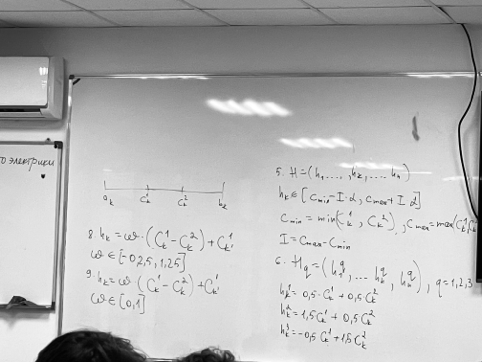 о электрики
a_k c_k^1 c_k^2 b_k
8. h_k = ω · (C_k^1 - C_k^2) + C_k^1
ω ∈ [-0,25, 1,25]
9. h_k = ω (C_k^1 - C_k^2) + C_k^1
ω ∈ [0,1]
5. H = (h_1, ..., h_k, ... h_n)
h_k ∈ [c_min - I·α, c_max + I α]
c_min = min(c_k^1, c_k^2), c_max = max(c_k^1
I = c_max - c_min
6. H_q = (h_1^q, ... h_k^q, h_n^q), q = 1,2,3
h_k^1 = 0,5 · C_k^1 + 0,5 C_k^2
h_k^2 = 1,5 C_k^1 + 0,5 C_k^2
h_k^3 = -0,5 C_k^1 + 1,5 C_k^2